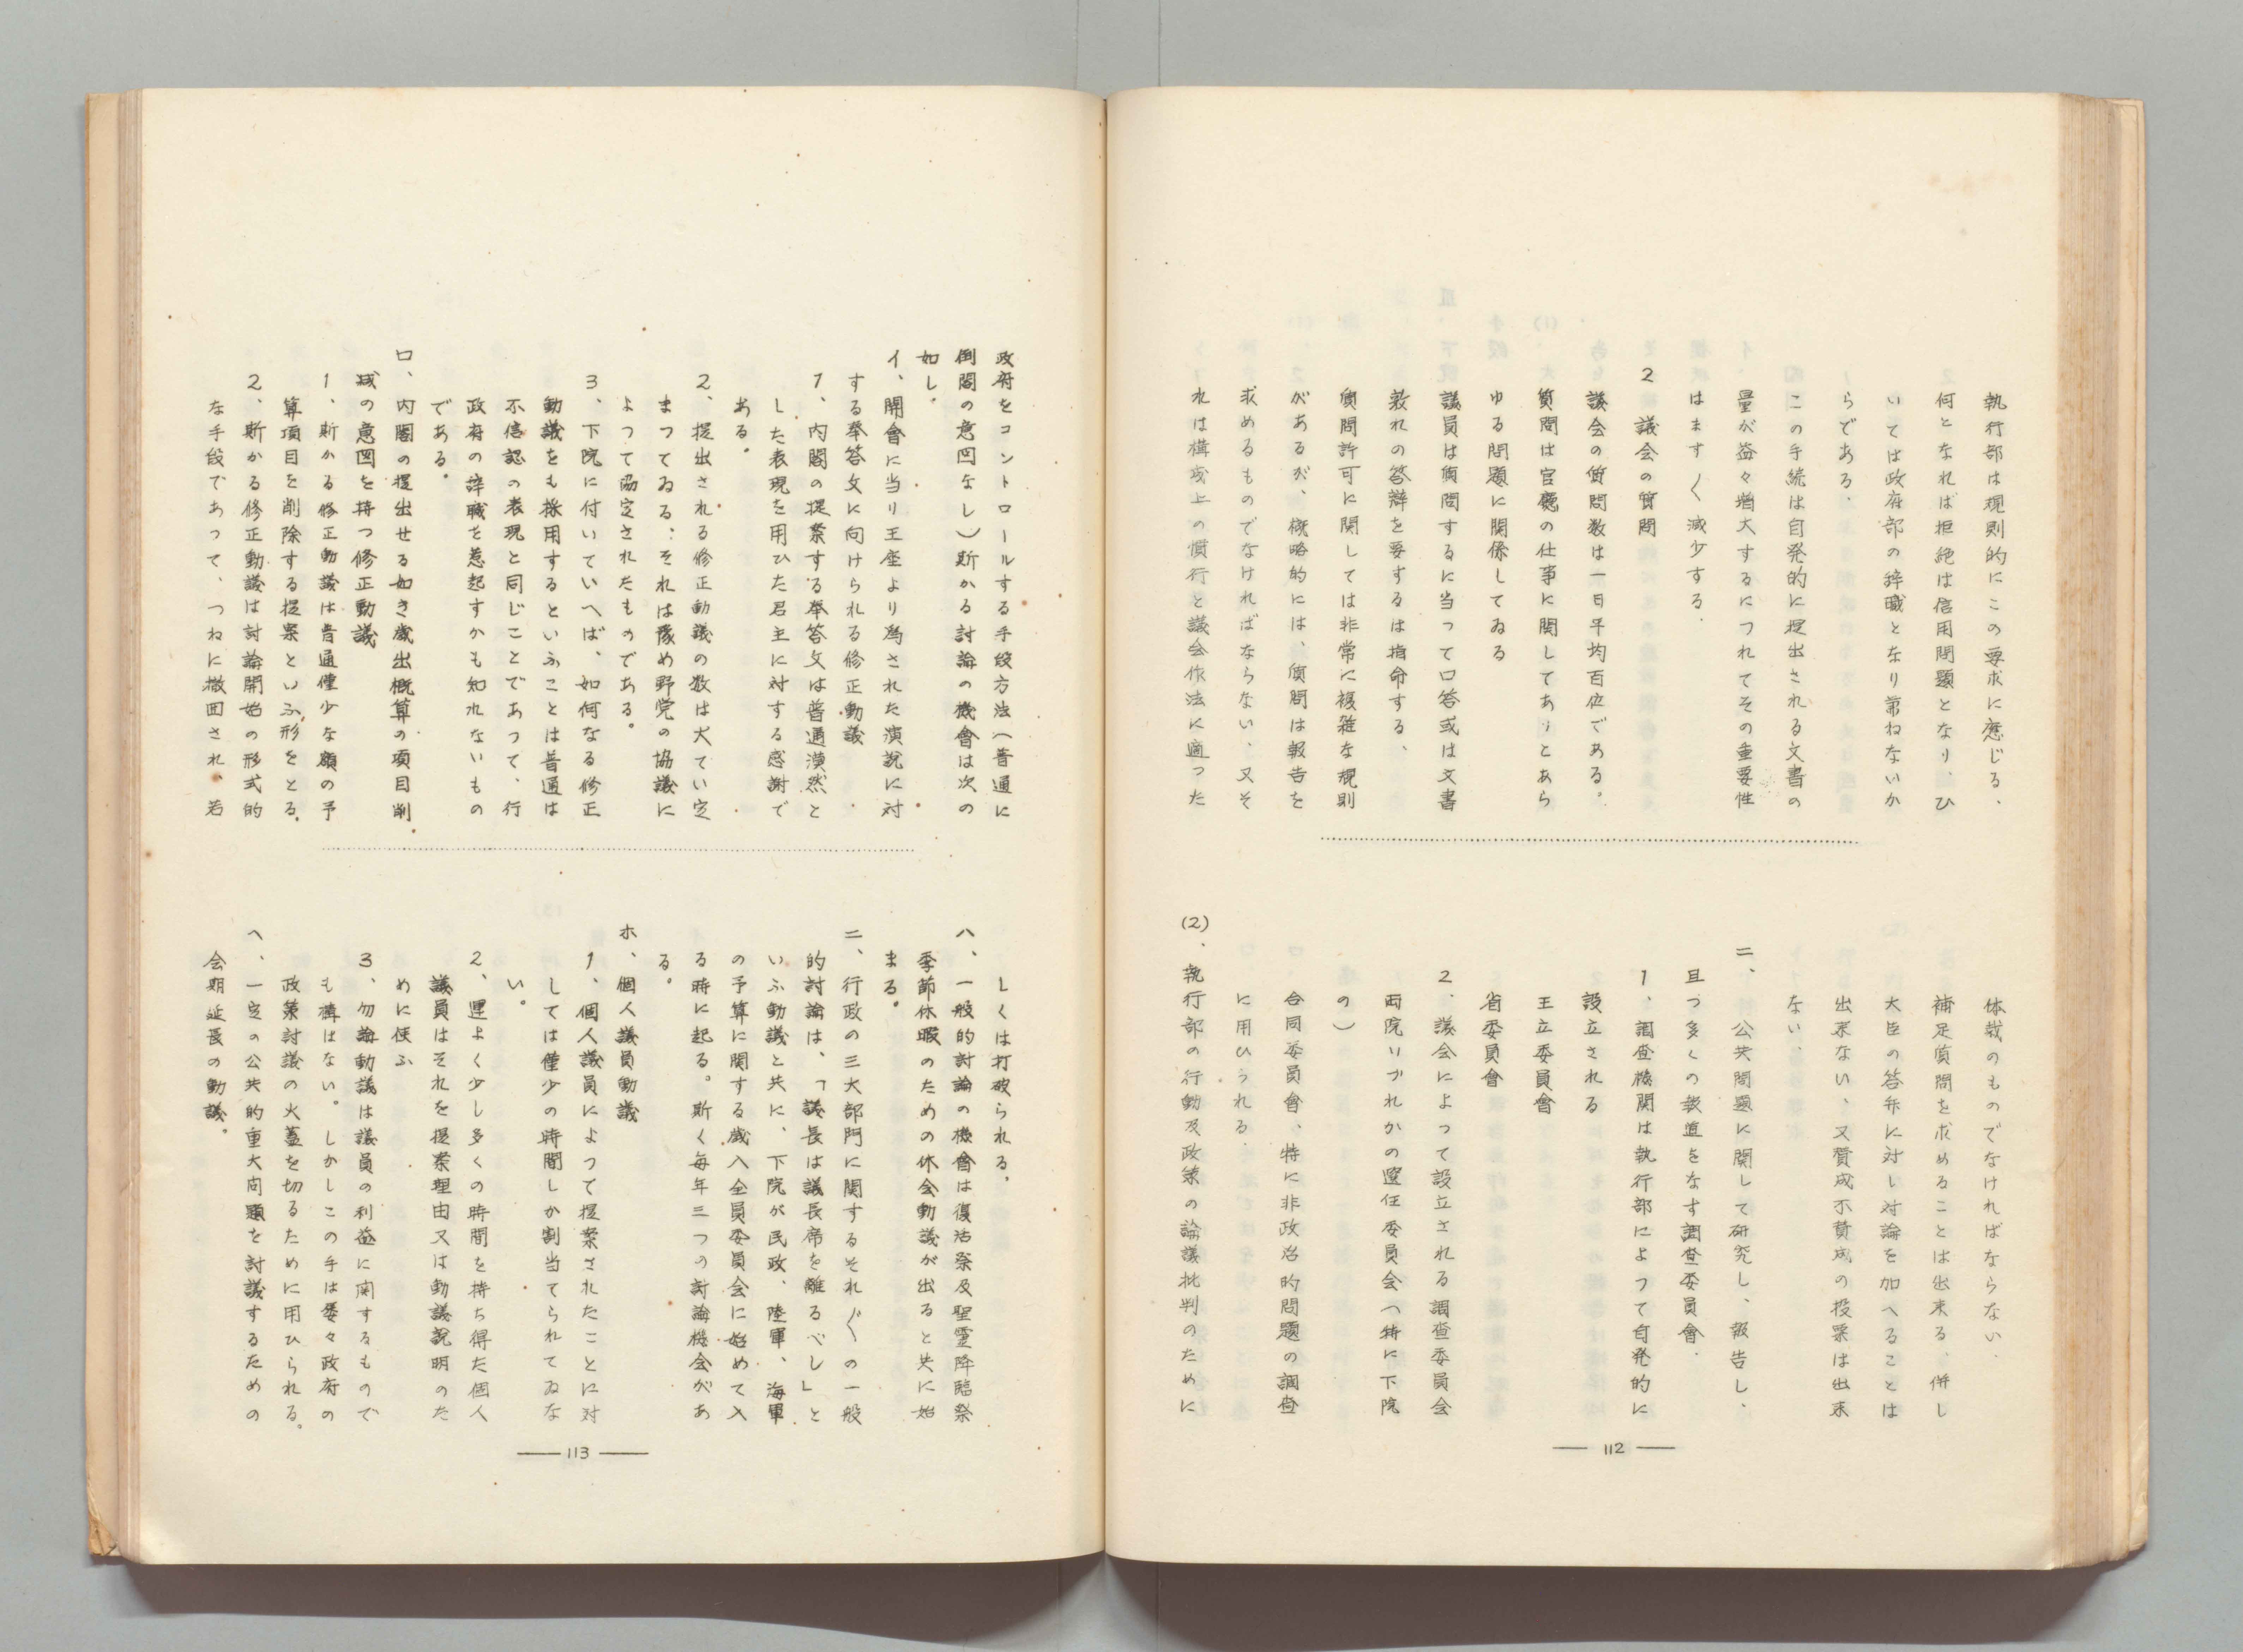 執行部は規則的にこの要求に應じる、
何となれば拒絶は信用問題となり、ひ
いては政府部の辞職となり兼ねないか
らである、
この手続は自発的に提出される文書の
量が益々増大するにつれてその重要性
はます〱減少する.
2 議会の質問
議会の質問数は一日平均百位である。
質問は官廳の仕事に関してありとあら
ゆる問題に関係してゐる
議員は質問するに当って口答或は文書
孰れの答辯を要するは指命する、
質問許可に関しては非常に複雑な規則
があるが、概略的には、質問は報告を
求めるものでなければならない、又そ
れは構成上の慣行と議会作法に適った
体裁のものでなければならない.
補足質問を求めることは出来る、併し
大臣の答弁に対し対論を加へることは
出来ない、又賛成不賛成の投票は出来
ない、
二、公共問題に関して研究し、報告し、
且つ多くの報道をなす調査委員會.
1、調査機関は執行部によつて自発的に
設立される
王立委員會
省委員會
2、議会によって設立される調査委員会
両院いづれかの選任委員会(特に下院
の)
合同委員會、特に非政治的問題の調査
に用ひられる.
(2)、執行部の行動及政策の論議批判のために
112
政府をコントロールする手段方法(普通に
倒閣の意図なし)斯かる討論の機會は次の
如し。
イ、開會に当り王座より為された演説に対
する奉答文に向けられる修正動議
1、内閣の提案する奉答文は普通漠然と
した表現を用ひた君主に対する感謝で
ある。
2、提出される修正動議の数は大てい定
まつてゐる、それは豫め野党の協議に
よつて協定されたものである。
3、下院に付いていへば、如何なる修正
動議をも採用するといふことは普通は
不信認の表現と同じことであつて、行
政府の辞職を惹起すかも知れないもの
である。
ロ、内閣の提出せる如き歳出概算の項目削
減の意図を持つ修正動議
1、斯かる修正動議は普通僅少な額の予
算項目を削除する提案といふ形をとる.
2、斯かる修正動議は討論開始の形式的
な手段であって、つねに撤回され、若
しくは打破られる.
ハ、一般的討論の機會は復活祭及聖霊降臨祭
季節休暇のための休会動議が出ると共に始
まる。
二、行政の三大部門に関するそれ〲の一般
的討論は、「議長は議長席を離るべし」と
いふ動議と共に、下院が民政、陸軍、海軍
の予算に関する歳入全員委員会に始めて入
る時に起る。斯く毎年三つの討論機会があ
る。
ホ、個人議員動議
1、個人議員によつて提案されたことに対
しては僅少の時間しか割当てられてゐな
い。
2、運よく少し多くの時間を持ち得た個人
議員はそれを提案理由又は動議説明のた
めに使ふ
3、勿論動議は議員の利益に関するもので
も構はない。しかしこの手は委々政府の
政策討議の火蓋を切るために用ひられる。
ヘ、一定の公共的重大問題を討議するための
会期延長の動議。
113